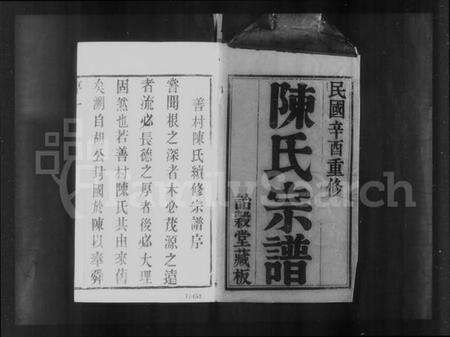 民國辛酉重修
陳氏宗譜
詒穀堂藏板
善村陳氏續修宗譜序
嘗聞根之深者木必茂源之遠
者流必長礎之厚者後必大理
固然也若善村陳氏其由來舊
矣溯自胡公得國於陳以奉舜
FamilySearch